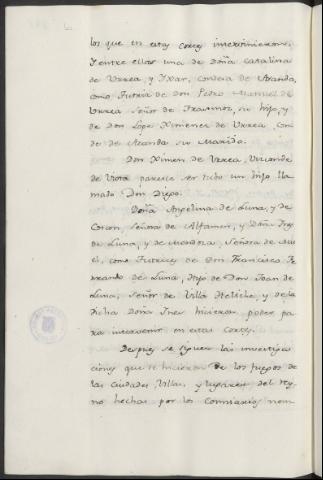 los que en estas cortes intervinieron.
Y entre ellas una de doña Catalina
de Urrea, y Yxar, condesa de Aranda,
como Tutriz de don Pedro Manuel de
Urrea Señor de Trasmoz, su hijo, y
de Don Lope Ximenez de Urrea, con
de de Aranda su Marido.
Don Ximen de Urrea, Vizconde
de Viota parece ser hubo un hijo lla
mado Don Diego.
Doña Angelina de Luna, y de
Coscon, Señora de Alfamen, y Dña Ines
de Luna, y de Mendoza, Señora de Mu
el, como Tutrices de Don Francisco Fe
rrando de Luna, Hijo de Don Joan de
Luna, Señor de Villa Feliche, y de la
dicha Doña Ines hicieron poder pa
ra intervenir en estas Cortes.
Despues se siguen las investiga
ciones que se hicieron de los fuegos de
las Ciudades, Villas, y lugares del rey
no hechas por los Comisarios nom